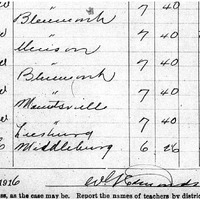 " 7 40
Bluemont
" 7 40
Unison
" 7 40
Bluemont
" 7 40
"
Leesburg
Middleburg 6 26
1916
es, as the case may be. Report the names of teachers by distri